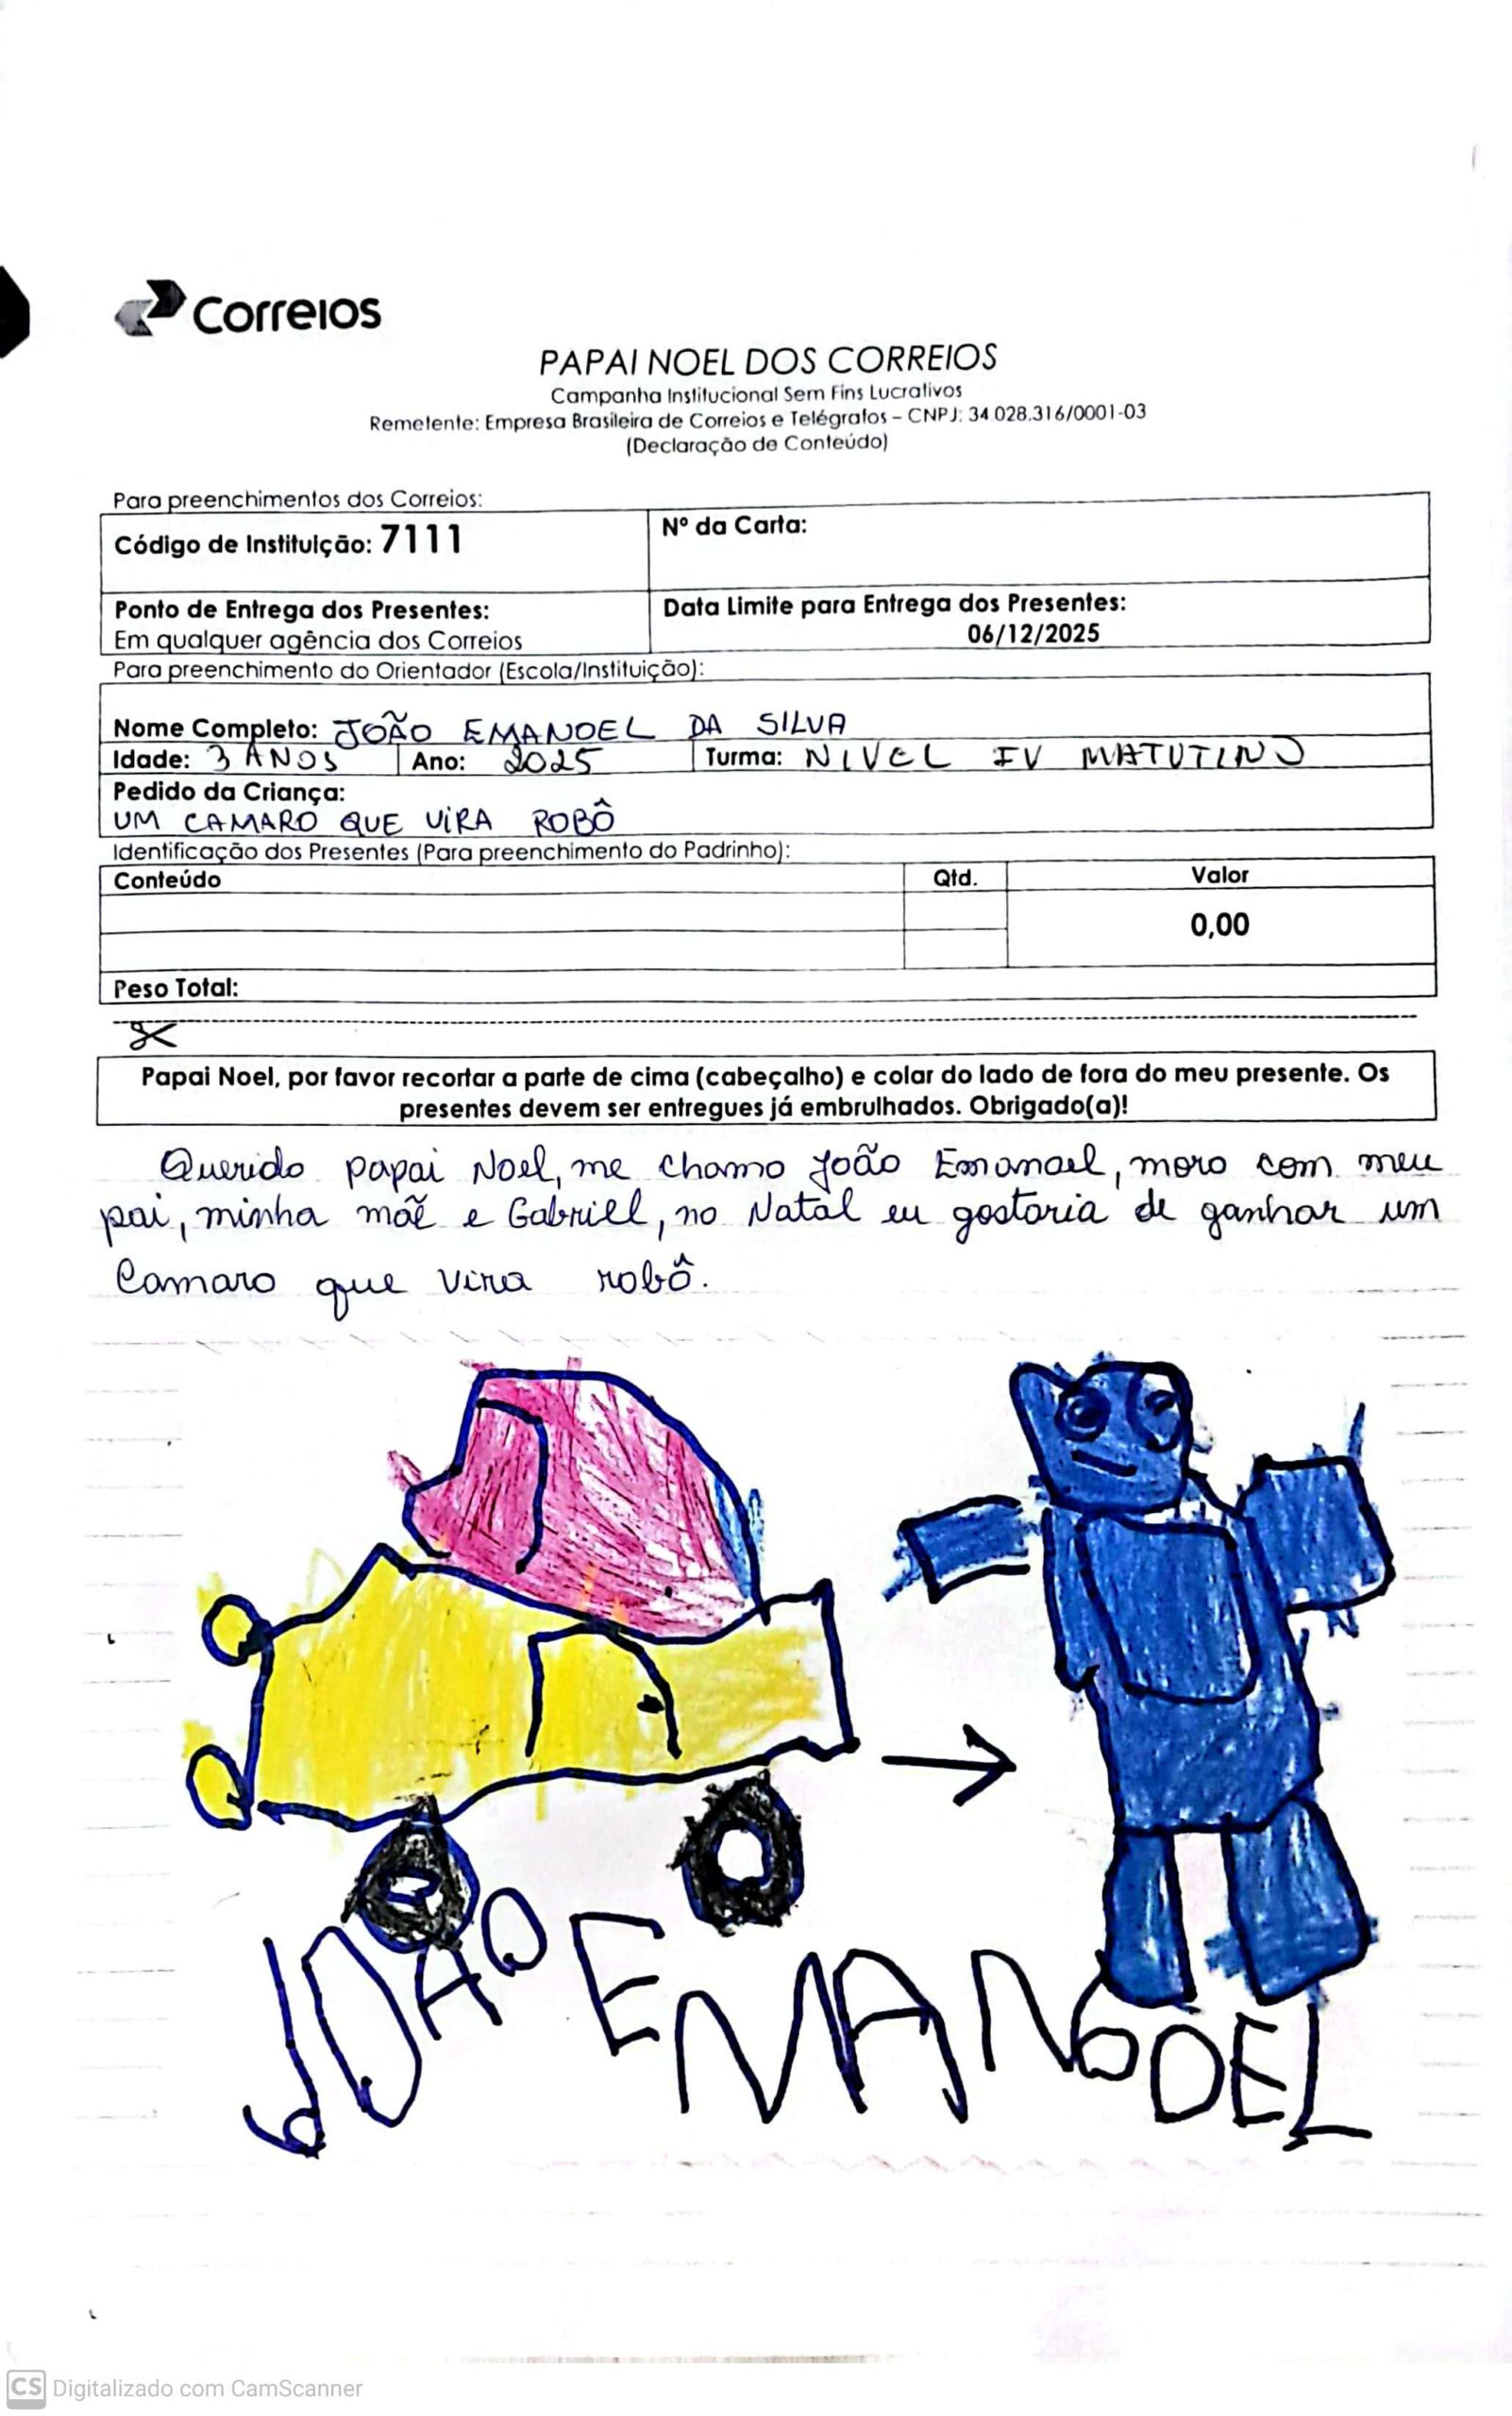 Correios
PAPAI NOEL DOS CORREIOS
Campanha Institucional Sem Fins Lucrativos
Remetente: Empresa Brasileira de Correios e Telégrafos – CNPJ: 34.028.316/0001-03
(Declaração de Conteúdo)
Para preenchimentos dos Correios:
Código de Instituição: 7111
Nº da Carta:
Ponto de Entrega dos Presentes:
Em qualquer agência dos Correios
Data Limite para Entrega dos Presentes:
06/12/2025
Para preenchimento do Orientador (Escola/Instituição):
Nome Completo: JOÃO EMANOEL DA SILVA
Idade: 3 ANOS Ano: 2025 Turma: NIVEL IV MATUTINO
Pedido da Criança:
UM CAMARO QUE VIRA ROBÔ
Identificação dos Presentes (Para preenchimento do Padrinho):
Conteúdo Qtd. Valor
0,00
Peso Total:
Papai Noel, por favor recortar a parte de cima (cabeçalho) e colar do lado de fora do meu presente. Os
presentes devem ser entregues já embrulhados. Obrigado(a)!
Querido papai Noel, me chamo João Emanoel, moro com meu
pai, minha mãe e Gabriell, no Natal eu gostaria de ganhar um
Camaro que vira robô.
JOAO EMANOEL
CS Digitalizado com CamScanner